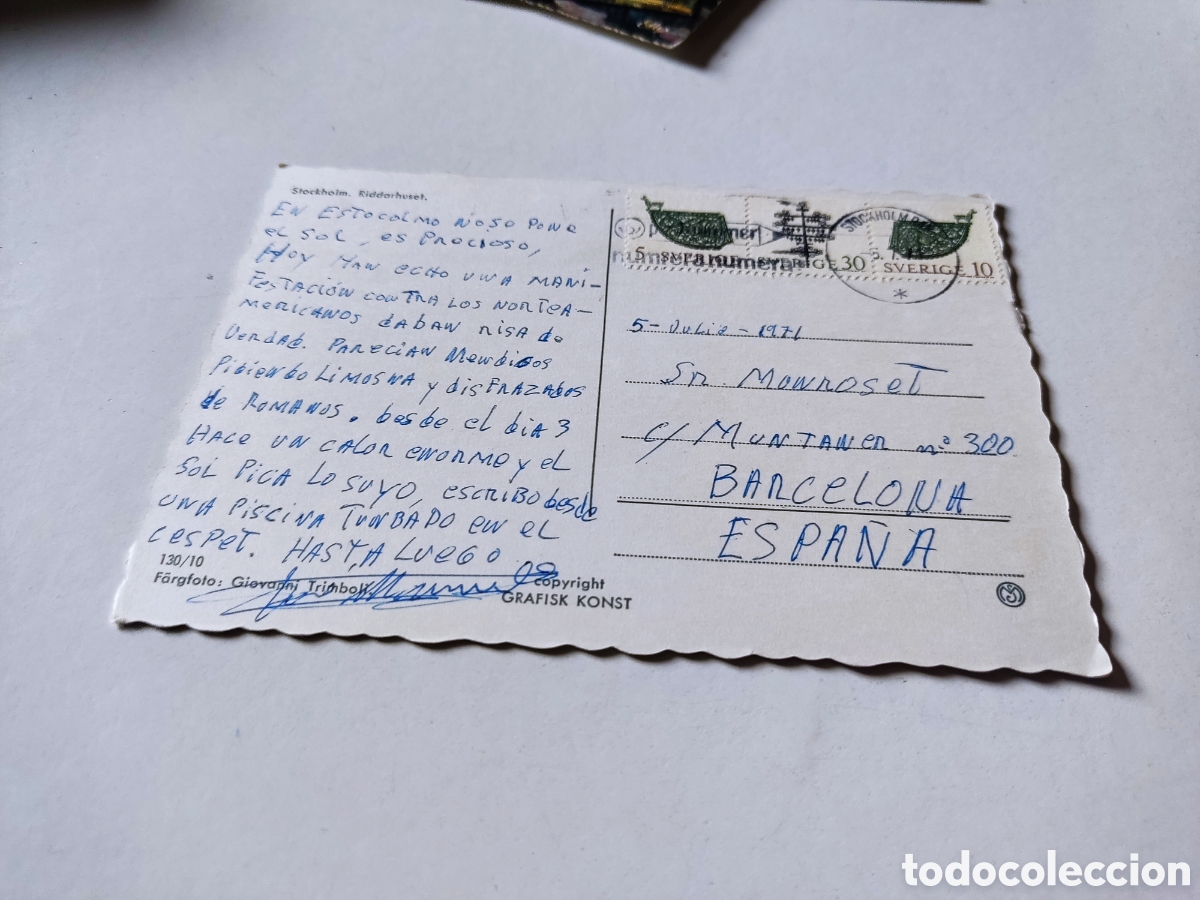 Stockholm. Riddarhuset.
EN ESTOCOLMO NO SO PONE
el SOL, es PRECIOSO,
HOY HAN ECHO UNA MANI-
FESTACIÓN CONTRA LOS NORTEA-
MERICANOS dABAN RISA de
VERDAD. PARECIAN MENDIGOS
PIDIENDO LIMOSNA y dISFRAZADOS
de ROMANOS. DESDE el DIA 3
HACE UN CALOR ENORME y el
SOL PICA LO SUYO, ESCRIBO DESDE
UNA PISCINA TUMBADO EN EL
CESPET. HASTA LUEGO.
130/10
Färgfoto: Giovanni Trimboli
copyright
GRAFISK KONST
nummer
numera numera
STOCKHOLM
5 SVERIGE
SVERIGE 30
SVERIGE 10
5 - JULIO - 1971
Sr. MONROSET
c/ MUNTANER nº 300
BARCELONA
ESPAÑA
todocoleccion